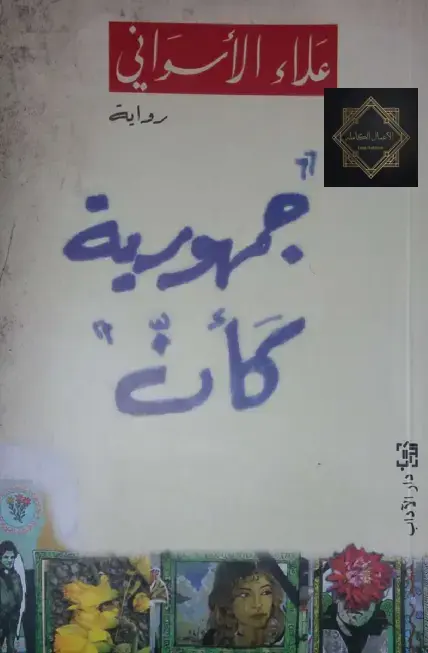 علاء الأسواني
رواية
الأعمال الكاملة
"جمهورية
كأنّ"
دار الآداب